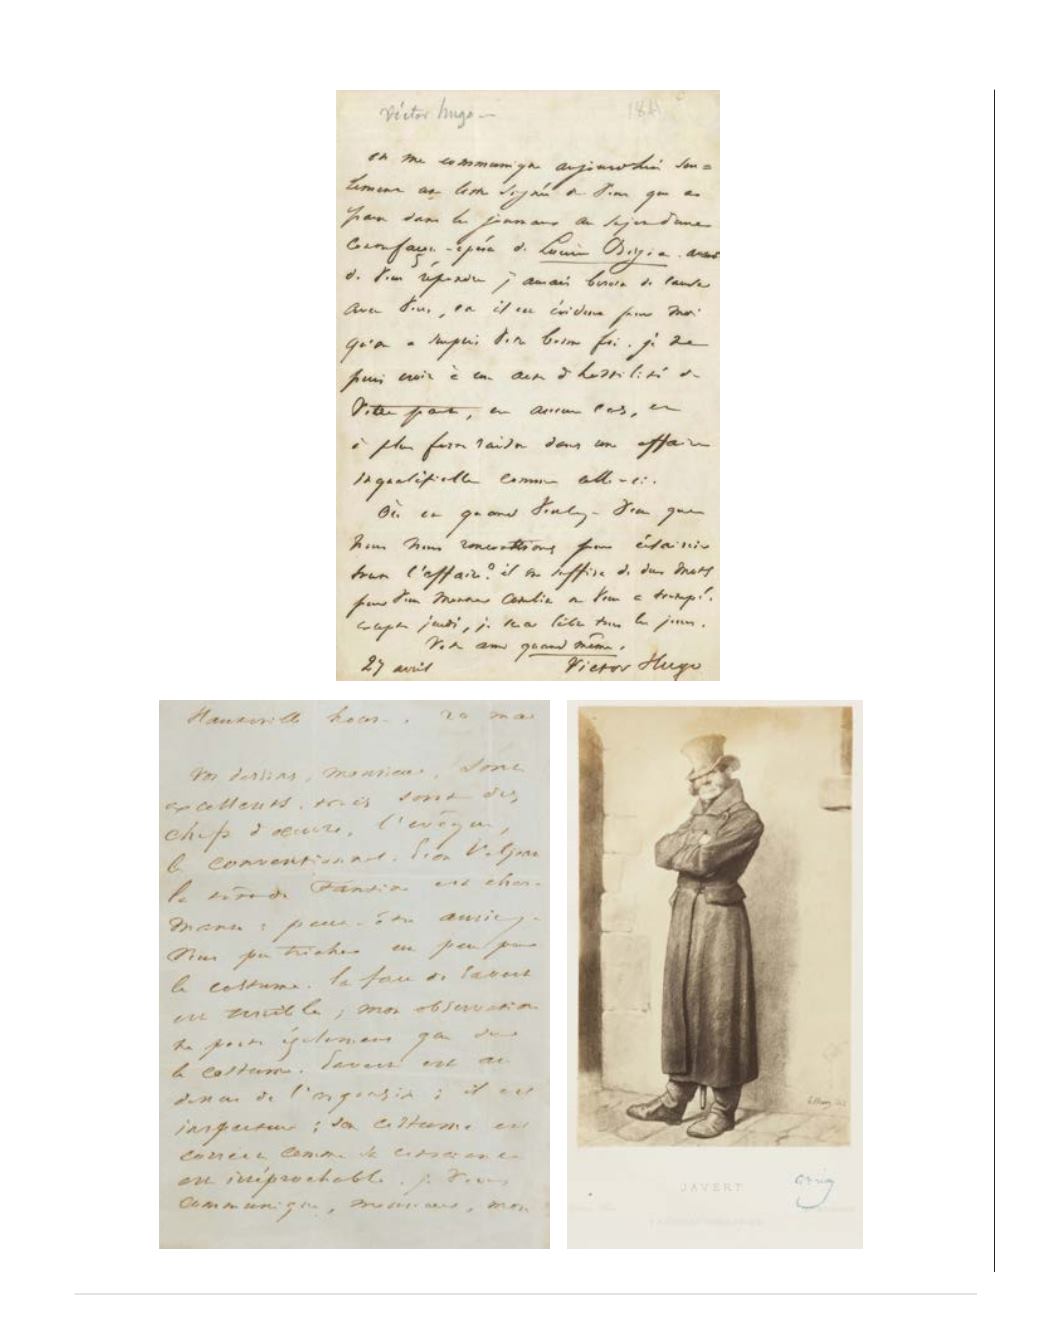 Victor hugo
184
on me communique aujourd'hui seu=
lement une lettre signée de vous qui a
paru dans les journaux au sujet d'une
contrefaçon-opéra de Lucrèce Borgia. avant
de vous répondre j'aurais besoin de causer
avec vous, car il est évident pour moi
qu'on a surpris votre bonne foi. je ne
puis croire à un acte d'hostilité de
votre part, en aucun cas, et
à plus forte raison dans une affaire
inqualifiable comme celle-ci.
Où et quand voulez-vous que
nous nous rencontrions pour éclaircir
toute l'affaire? il me suffira de deux mots
pour vous montrer combien on vous a trompé.
excepté jeudi, je serai libre tous les jours.
Votre ami quand même.
27 avril Victor Hugo
Hauteville house, 20 mai
Vos dessins, monsieur, sont
excellents. trois sont des
chefs d'œuvre, l'évêque,
le conventionnel, Jean Valjean
la tête de Fantine est char-
mante; peut-être auriez-
vous pu tricher un peu pour
le costume. la face de Javert
est terrible; mon observation
ne porte également que sur
le costume. Javert est au
dessus de l'argousin; il est
inspecteur; son costume est
correct comme sa conscience
est irréprochable. je vous
communique, monsieur, mon
JAVERT